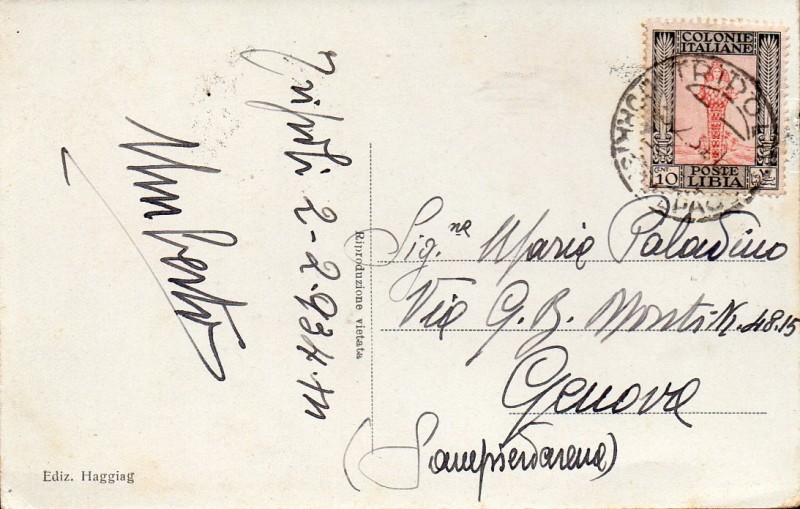 Tripoli 2-2.934.XII
Umberto
Riproduzione vietata
Ediz. Haggiag
COLONIE
ITALIANE
CENT. 10
POSTE
LIBIA
TRIPOLI
Sig.na Maria Paladino
Via G. B. Monti N. 48.15
Genova
(Sampierdarena)